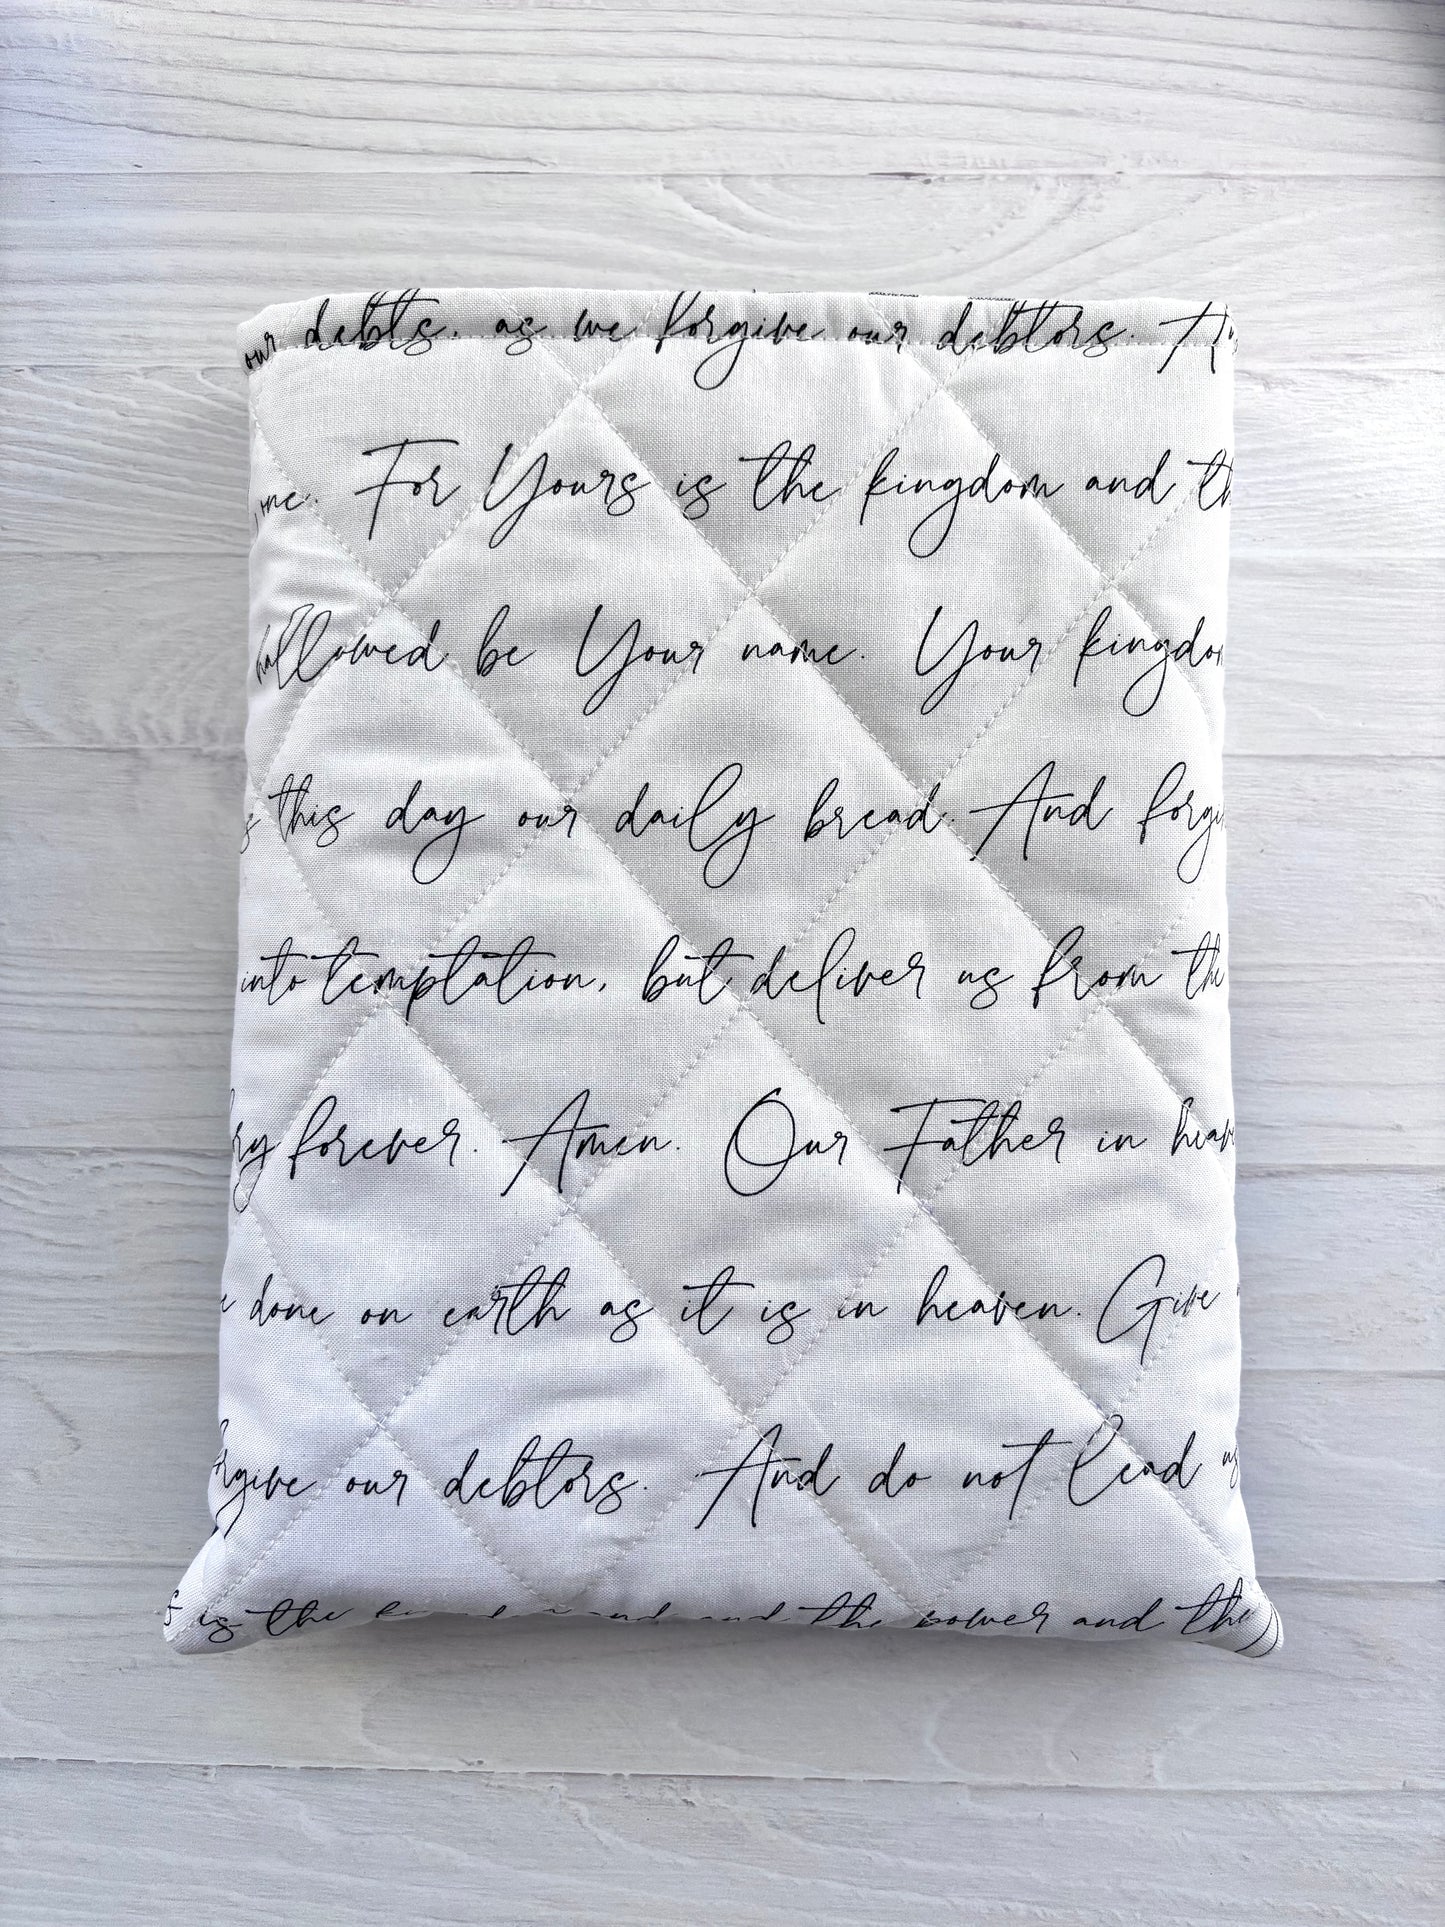 our debts, as we forgive our debtors.
For Yours is the kingdom and
hallowed be Your name. Your
this day our daily bread. And
into temptation, but deliver us from the
forever. Amen. Our Father in
done on earth as it is in heaven. Give
our debtors. And do not lead us
is the and the power and the